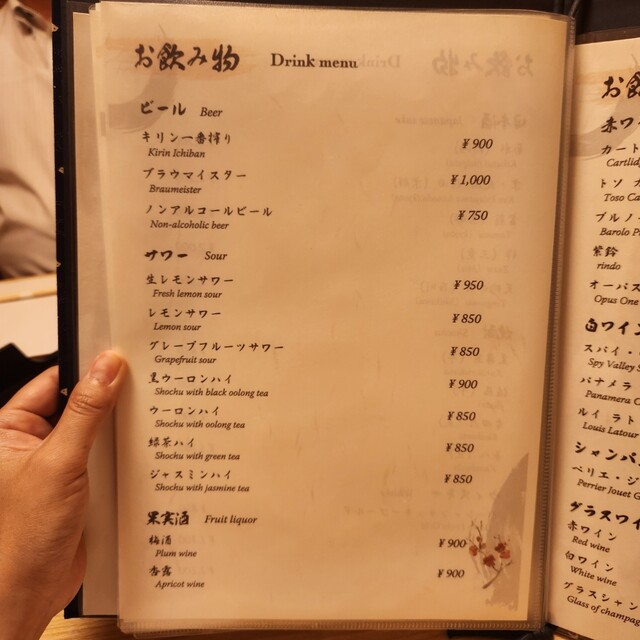 お飲み物 Drink menu
ビール Beer
キリン一番搾り ¥900
Kirin Ichiban
ブラウマイスター ¥1,000
Braumeister
ノンアルコールビール ¥750
Non-alcoholic beer
サワー Sour
生レモンサワー ¥950
Fresh lemon sour
レモンサワー ¥850
Lemon sour
グレープフルーツサワー ¥850
Grapefruit sour
黒ウーロンハイ ¥900
Shochu with black oolong tea
ウーロンハイ ¥850
Shochu with oolong tea
緑茶ハイ ¥850
Shochu with green tea
ジャスミンハイ ¥850
Shochu with jasmine tea
果実酒 Fruit liquor
梅酒 ¥900
Plum wine
杏露 ¥900
Apricot wine
お
赤ワ
カート
Cartlid
トソ カ
Toso Ca
ブルノ
Barolo P
紫鈴
rindo
オーパス
Opus One
白ワイン
スパイ・
Spy Valley S
パナメラ
Panamera C
ルイ ラト
Louis Latour
シャンパ
ペリエ・ジ
Perrier Jouet G
グラスワイ
赤ワイン
Red wine
白ワイン
White wine
グラスシャン
Glass of champag